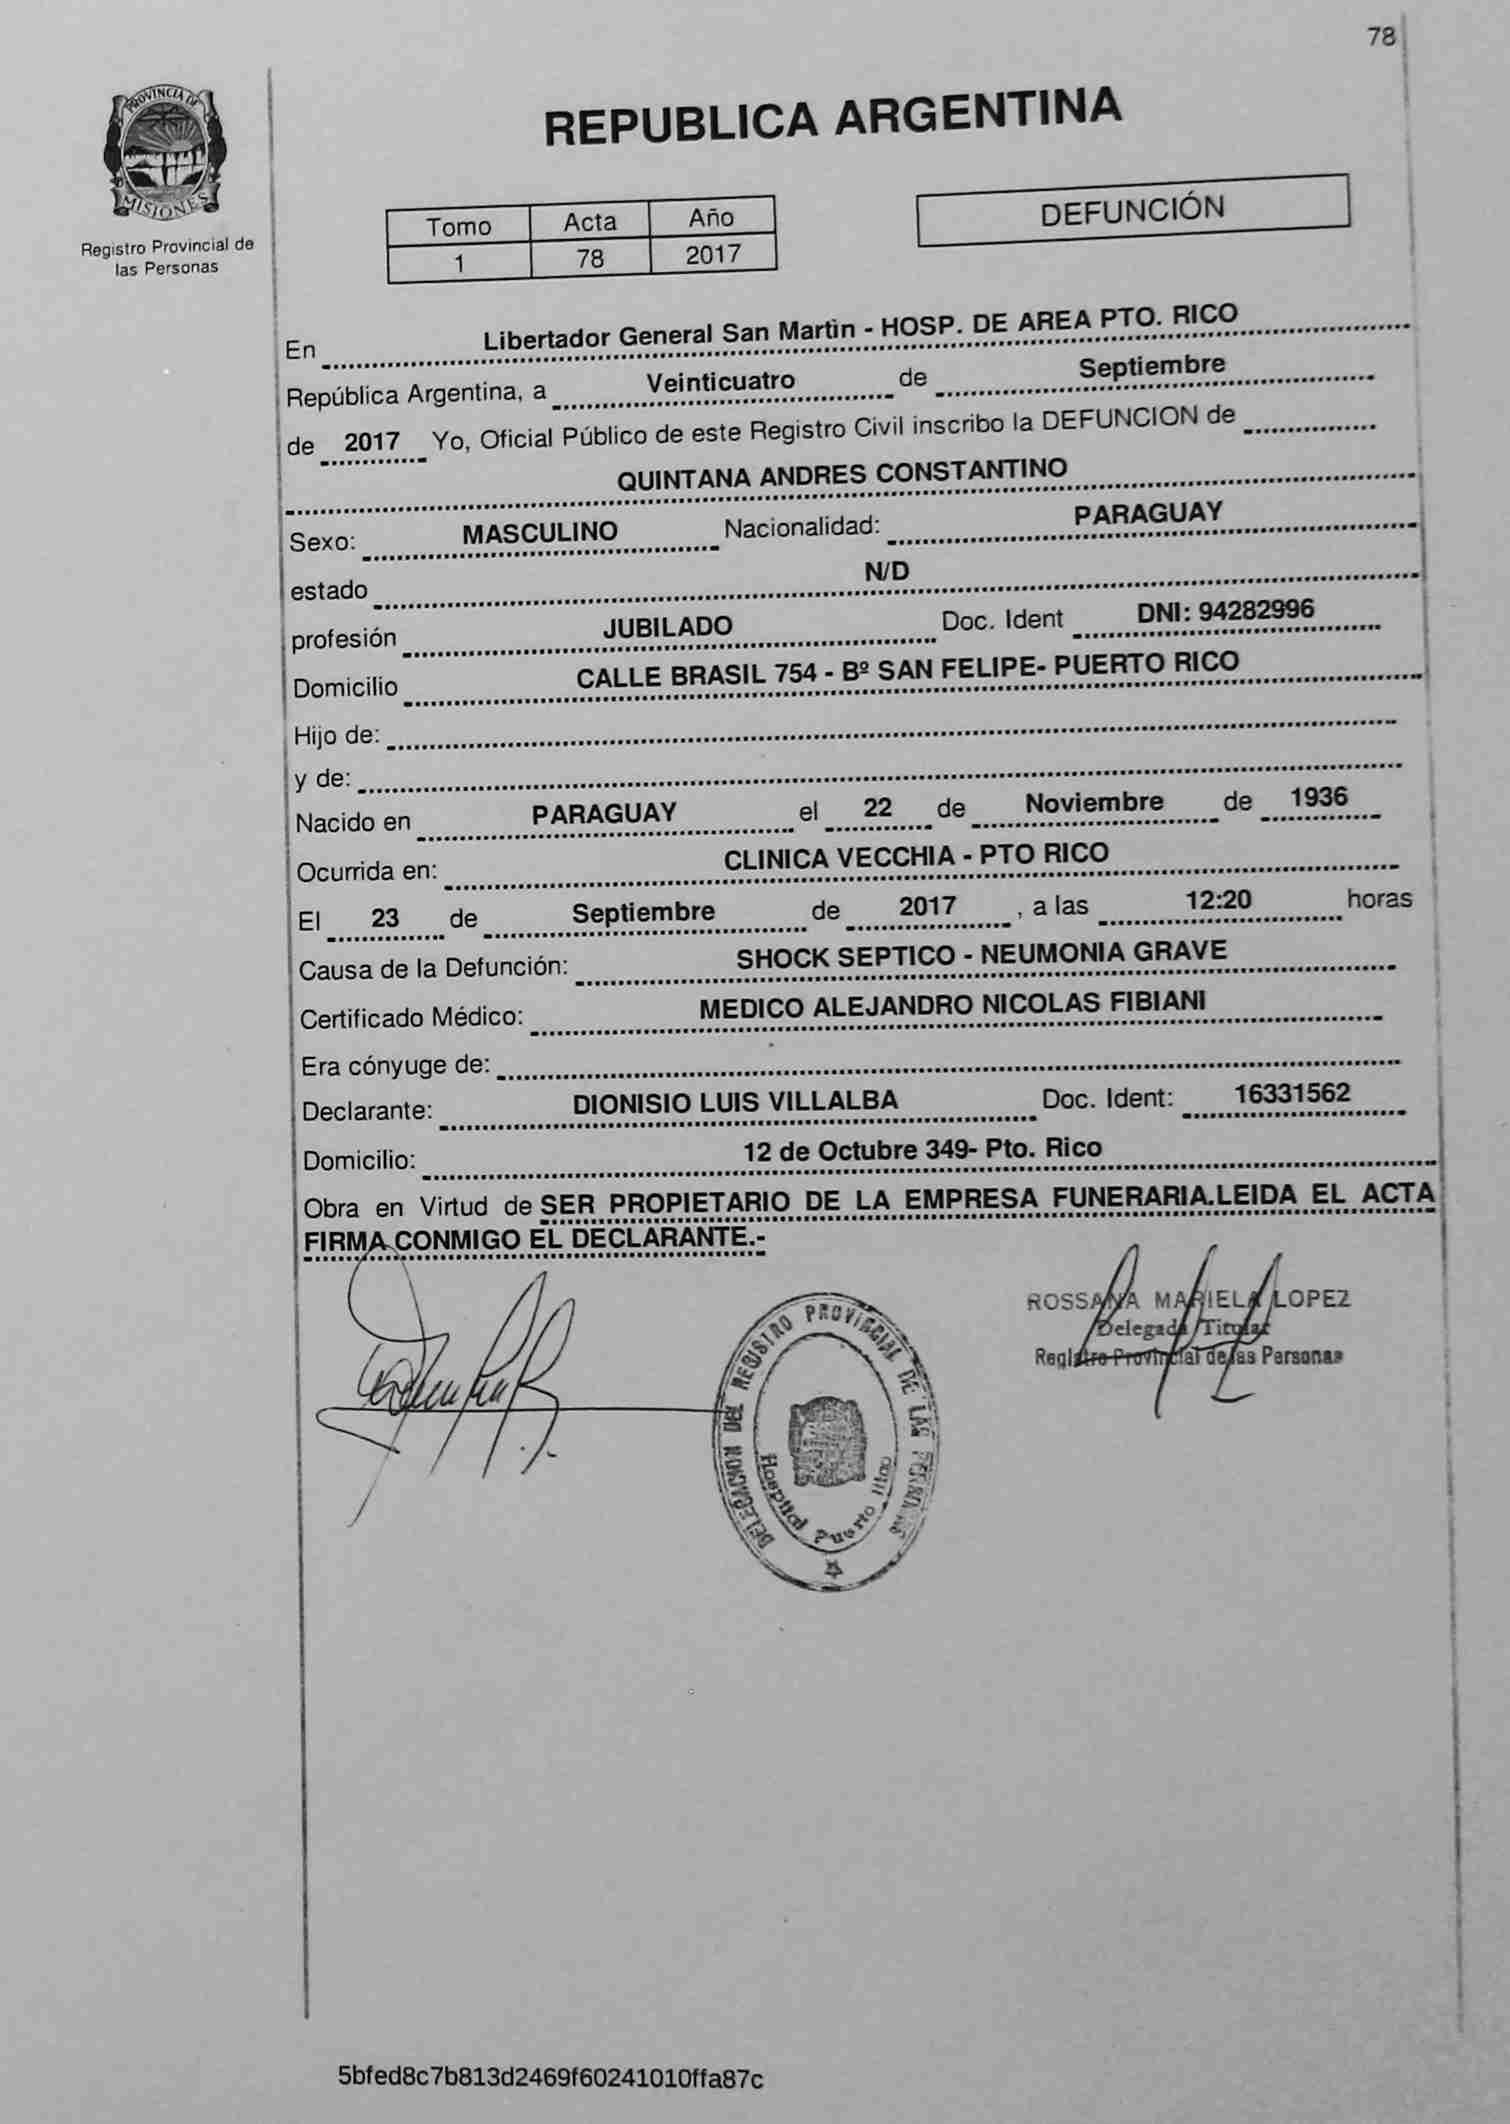 78
PROVINCIA DE
MISIONES
Registro Provincial de
las Personas
REPUBLICA ARGENTINA
Tomo Acta Año
1 78 2017
DEFUNCIÓN
En Libertador General San Martin - HOSP. DE AREA PTO. RICO
República Argentina, a Veinticuatro de Septiembre
de 2017 Yo, Oficial Público de este Registro Civil inscribo la DEFUNCION de
QUINTANA ANDRES CONSTANTINO
Sexo: MASCULINO Nacionalidad: PARAGUAY
estado N/D
profesión JUBILADO Doc. Ident DNI: 94282996
Domicilio CALLE BRASIL 754 - Bº SAN FELIPE- PUERTO RICO
Hijo de:
y de:
Nacido en PARAGUAY el 22 de Noviembre de 1936
Ocurrida en: CLINICA VECCHIA - PTO RICO
El 23 de Septiembre de 2017 , a las 12:20 horas
Causa de la Defunción: SHOCK SEPTICO - NEUMONIA GRAVE
Certificado Médico: MEDICO ALEJANDRO NICOLAS FIBIANI
Era cónyuge de:
Declarante: DIONISIO LUIS VILLALBA Doc. Ident: 16331562
Domicilio: 12 de Octubre 349- Pto. Rico
Obra en Virtud de SER PROPIETARIO DE LA EMPRESA FUNERARIA.LEIDA EL ACTA
FIRMA CONMIGO EL DECLARANTE.-
ROSSANA MARIELA LOPEZ
Delegada Titular
Registro Provincial de las Personas
DELEGACION DEL REGISTRO PROVINCIAL DE LAS PERSONAS
Hospital Puerto Rico
5bfed8c7b813d2469f60241010ffa87c